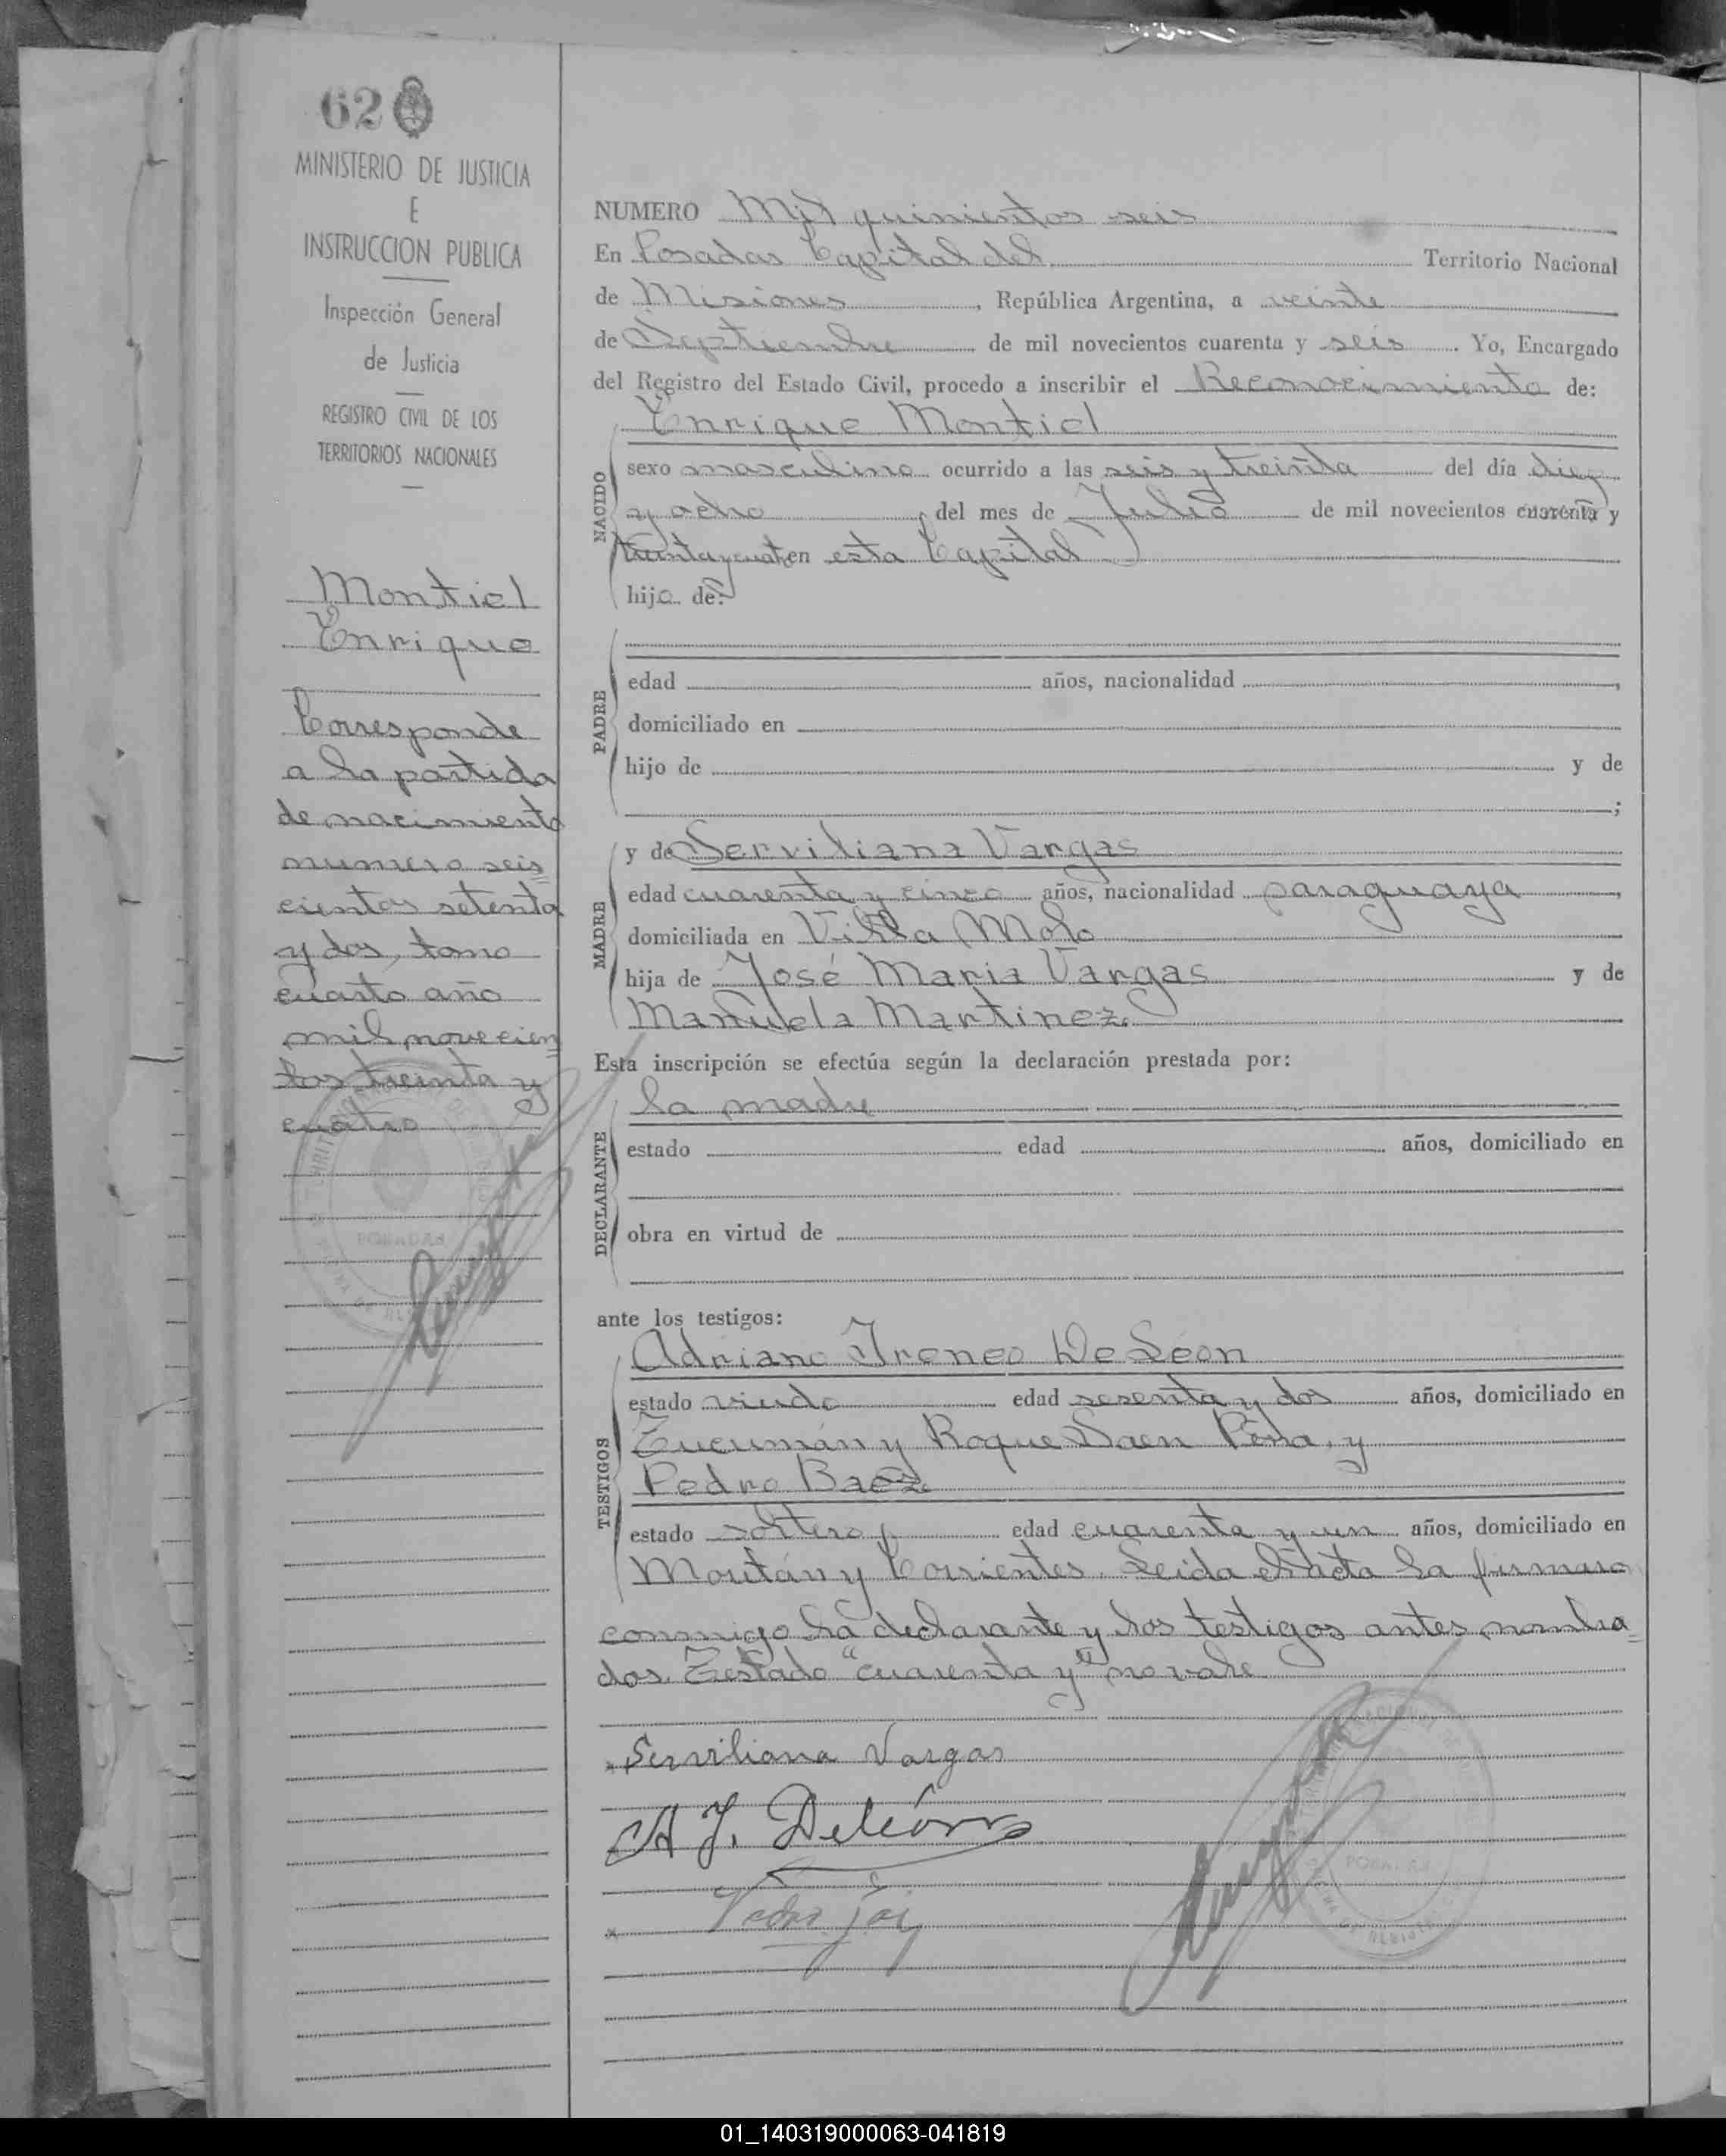 62
MINISTERIO DE JUSTICIA
E
INSTRUCCION PUBLICA
Inspección General
de Justicia
REGISTRO CIVIL DE LOS
TERRITORIOS NACIONALES
Montiel
Enrique
Corresponde
a la partida
de nacimiento
numero seis
cientos setenta
y dos, tomo
cuarto año
mil novecien
tos treinta y
cuatro
POSADAS
NUMERO Mil quinientos seis
En Posadas Capital del Territorio Nacional
de Misiones, República Argentina, a veinte
de Septiembre de mil novecientos cuarenta y seis. Yo, Encargado
del Registro del Estado Civil, procedo a inscribir el Reconocimiento de:
Enrique Montiel
NACIDO
sexo masculino ocurrido a las seis y treinta del día diez
y ocho, del mes de Julio de mil novecientos cuarenta y
treinta y cuatro en esta Capital
hijo de:
PADRE
edad años, nacionalidad ,
domiciliado en
hijo de y de
;
y de Serviliana Vargas
MADRE
edad cuarenta y cinco años, nacionalidad paraguaya,
domiciliada en Villa Mola
hija de José Maria Vargas y de
Manuela Martinez
Esta inscripción se efectúa según la declaración prestada por:
la madre
DECLARANTE
estado edad años, domiciliado en
obra en virtud de
ante los testigos:
Adriano Ireneo De León
TESTIGOS
estado viudo edad sesenta y dos años, domiciliado en
Tucumán y Roque Saen Peña, y
Pedro Baez
estado soltero, edad cuarenta y un años, domiciliado en
Moritán y Corrientes. Leida el acta la firmaron
conmigo la declarante y los testigos antes nombra=
dos. Testado "cuarenta y" no vale
Serviliana Vargas
A J. Deleón
Pedro
POSADAS
01_140319000063-041819